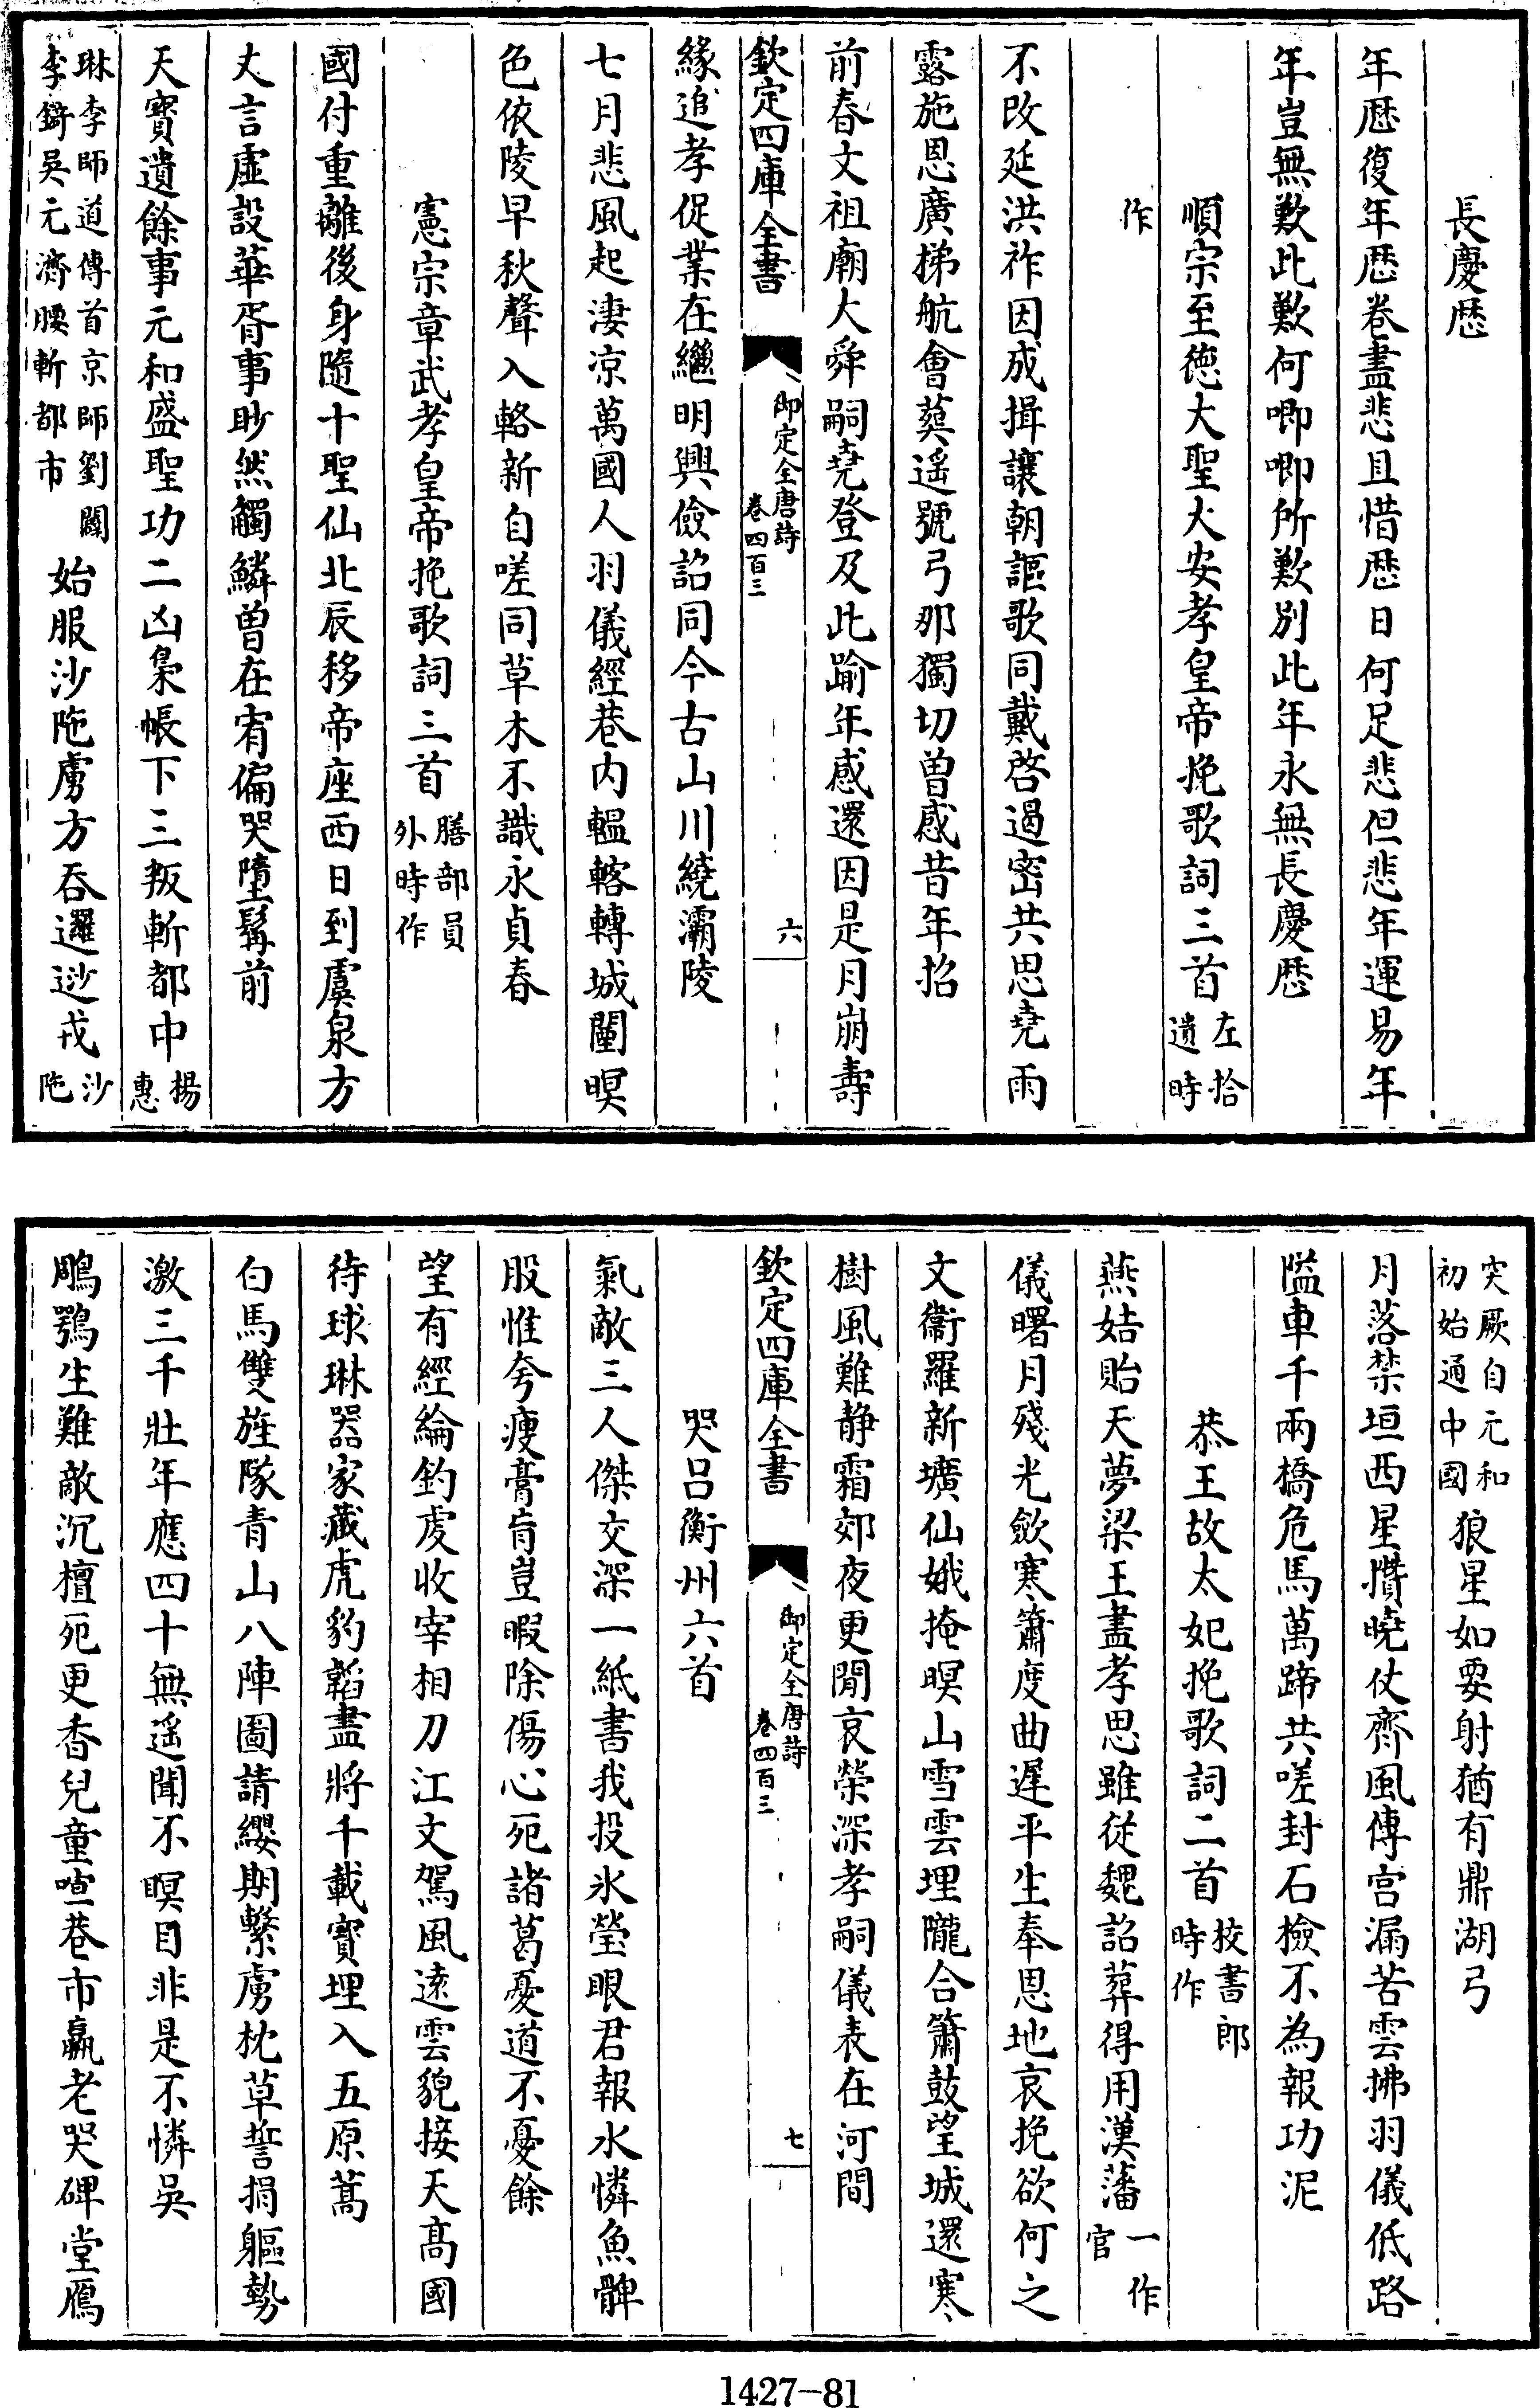 長慶歴
年歴復年歴卷盡悲且惜歴日何足悲但悲年運易年
年豈無歎此歎何唧唧所歎別此年永無長慶歴
順宗至德大聖大安孝皇帝挽歌詞三首左拾遺時
作
不改延洪祚因成揖讓朝謳歌同戴啓遏密共思堯雨
露施恩廣梯航會葬遥號弓那獨切曽感昔年招
前春文祖廟大舜嗣堯登及此踰年感還因是月崩壽
欽定四庫全書 御定全唐詩卷四百三 六
緣追孝促業在繼明興儉詔同今古山川繞灞陵
七月悲風起淒凉萬國人羽儀經巷内轀轄轉城闉暝
色依陵早秋聲入輅新自嗟同草木不識永貞春
憲宗章武孝皇帝挽歌詞三首膳部員外時作
國付重離後身隨十聖仙北辰移帝座西日到虞泉方
丈言虚設華胥事眇然觸鱗曽在宥偏哭墮髯前
天寳遺餘事元和盛聖功二凶梟帳下三叛斬都中楊惠
琳李師道傳首京師劉闢李錡吳元濟腰斬都市始服沙陁虜方吞邏逤戎沙陁
突厥自元和初始通中國狼星如要射猶有鼎湖弓
月落禁垣西星攢曉仗齊風傳宫漏苦雲拂羽儀低路
隘車千兩橋危馬萬蹄共嗟封石檢不為報功泥
恭王故太妃挽歌詞二首校書郎時作
燕姞貽天夢梁王盡孝思雖從魏詔葬得用漢藩一作官
儀曙月殘光斂寒簫度曲遲平生奉恩地哀挽欲何之
文衞羅新壙仙娥掩暝山雪雲埋隴合簫鼓望城還寒
樹風難静霜郊夜更閒哀榮深孝嗣儀表在河間
欽定四庫全書 御定全唐詩卷四百三 七
哭呂衡州六首
氣敵三人傑交深一紙書我投氷瑩眼君報水憐魚髀
股惟夸瘦膏肓豈暇除傷心死諸葛憂道不憂餘
望有經綸釣䖏收宰相刀江文駕風逺雲貌接天髙國
待球琳器家藏虎豹韜盡將千載寳埋入五原蒿
白馬雙旌隊青山八陣圖請纓期繫虜枕草誓捐軀勢
激三千壯年應四十無遥聞不瞑目非是不憐吳
鵰鶚生難敵沉檀死更香兒童喧巷市羸老哭碑堂鴈
1427-81